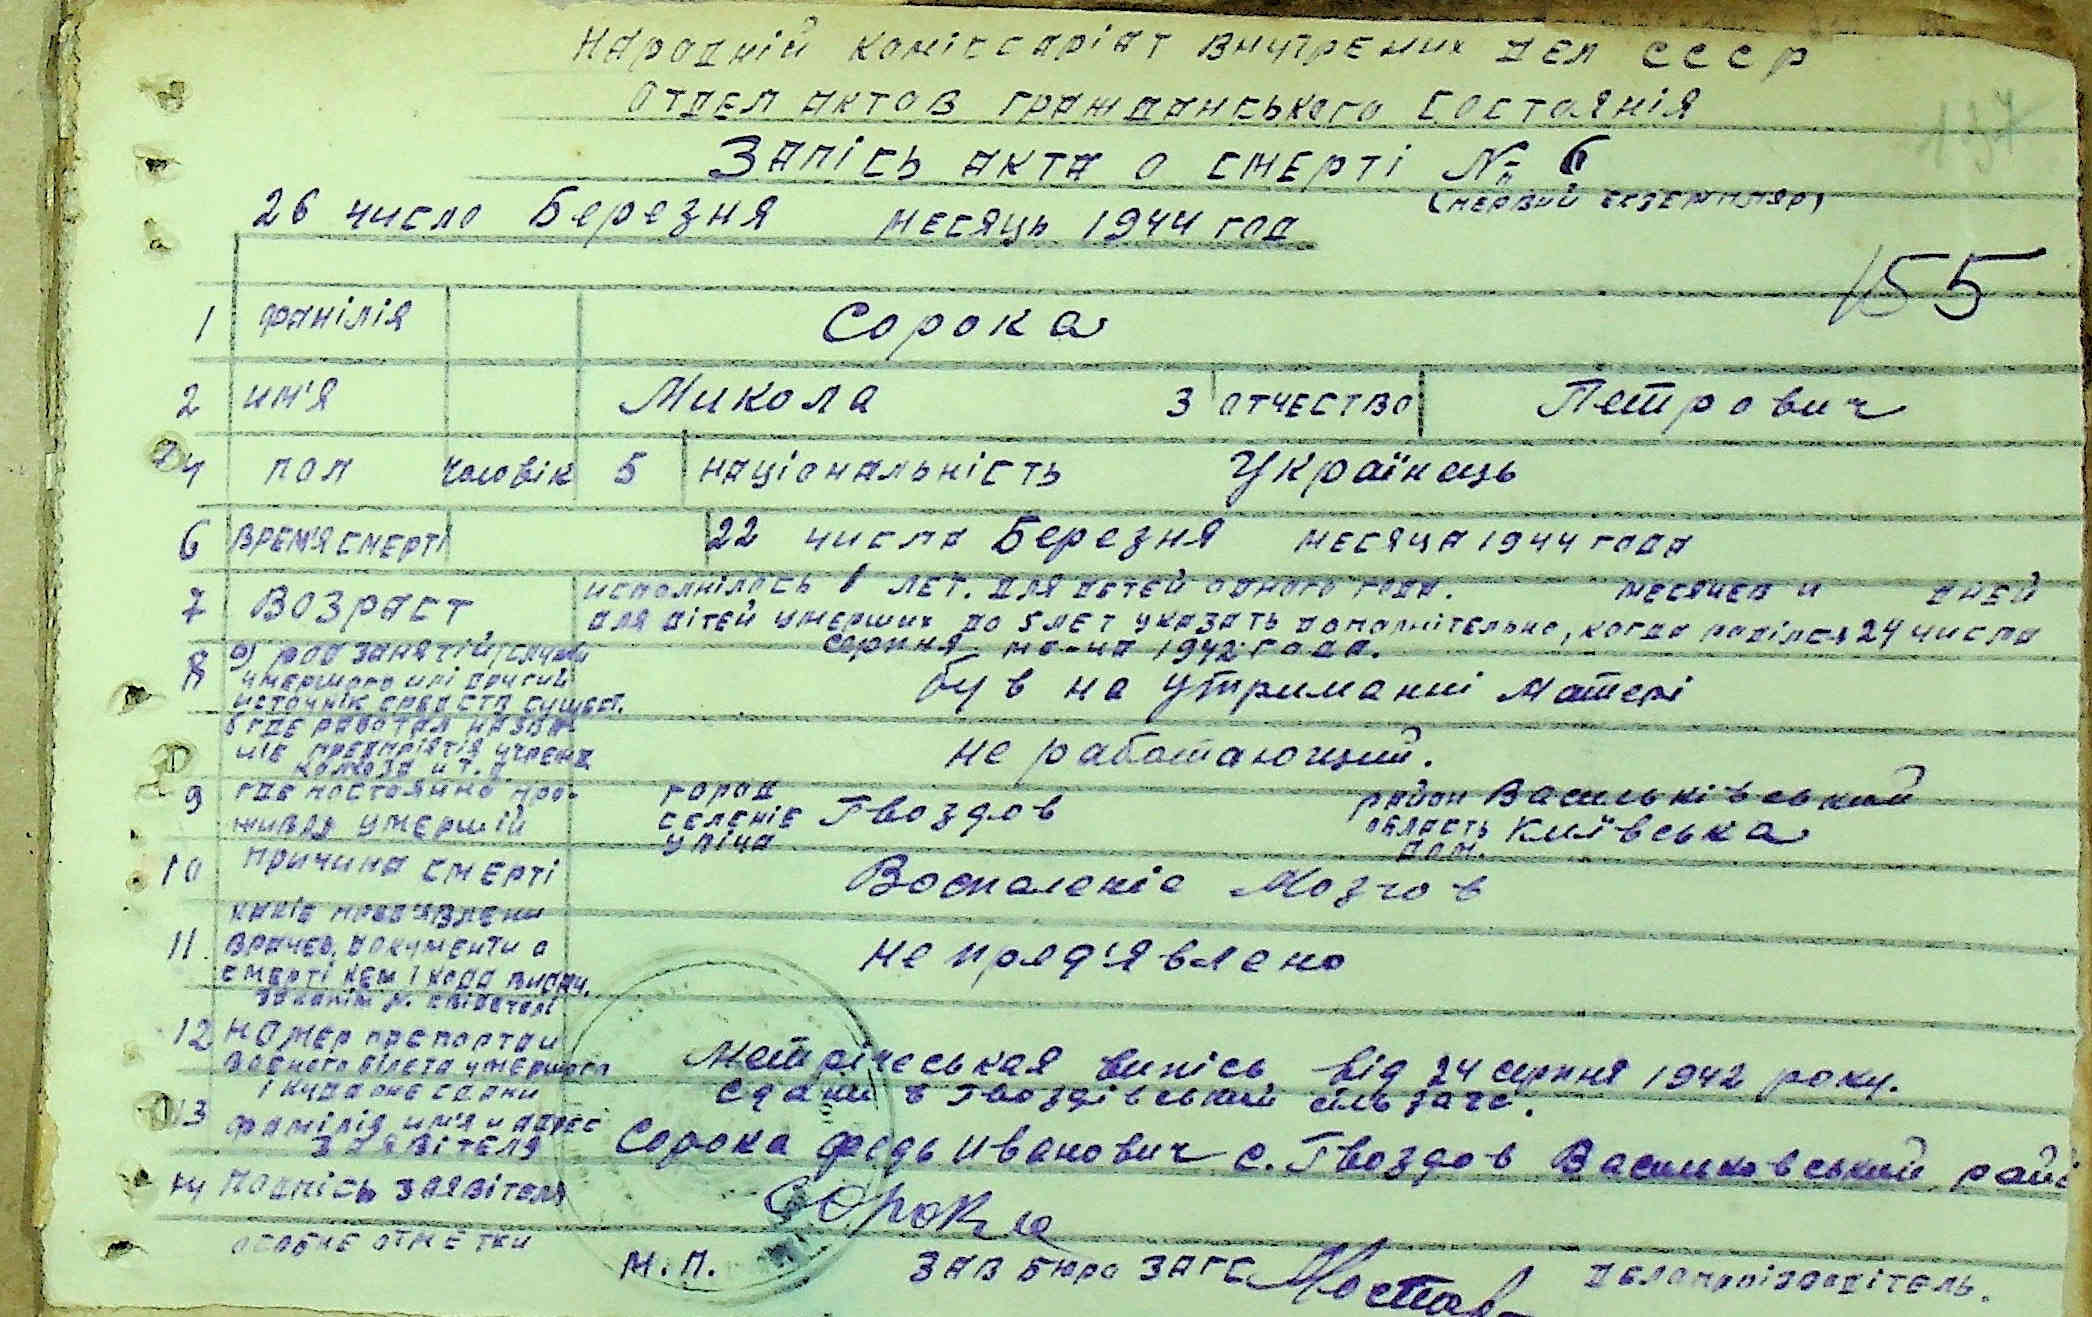 Народній комісаріат внутрених дел СССР
Отдел актов гражданського состоянія
137
Запісь акта о смерті № 6
(первий екземпляр)
26 число Березня месяць 1944 год
155
1 фамілія Сорока
2 им'я Микола 3 отчество Петрович
4 пол чоловік 5 національність Українець
6 врем'я смерті 22 числа Березня месяца 1944 года
7 Возраст исполнілось 1 лет. для детей одного года. месяцев и дней
для дітей умерших до 5 лет указать дополнітельно, когда роділся 24 числа
серпня м-ца 1942 года.
8 а) род занятій (служби
умершого илі другий
источнік средств сущест.
був на утриманні Матері
б где работал назва-
ніе предпріятія учрежд
колхоза и т.д.
не работающий.
9 где постоянно про-
живал умершій
город
селеніе Гвоздов
уліца
район Васильківський
область Київська
дом.
10 причина смерті Воспаленіе Мозгов
11 какіе пред'явлени
врачеб. документи о
смерті кем і када видан.
не пред'явлено
12 номер паспорта и
военного білета умершого
і куда оне сдани
Метрическая випісь від 24 серпня 1942 року.
Сдани в Гвоздівський сільзагс.
13 фамілія им'я и адрес
заявітеля
Сорока Федь Иванович с. Гвоздов Васильковський рай
14 подпісь заявітеля Сорока
особие отметки
М.П. Зав Бюро ЗАГС делопроізводітель.